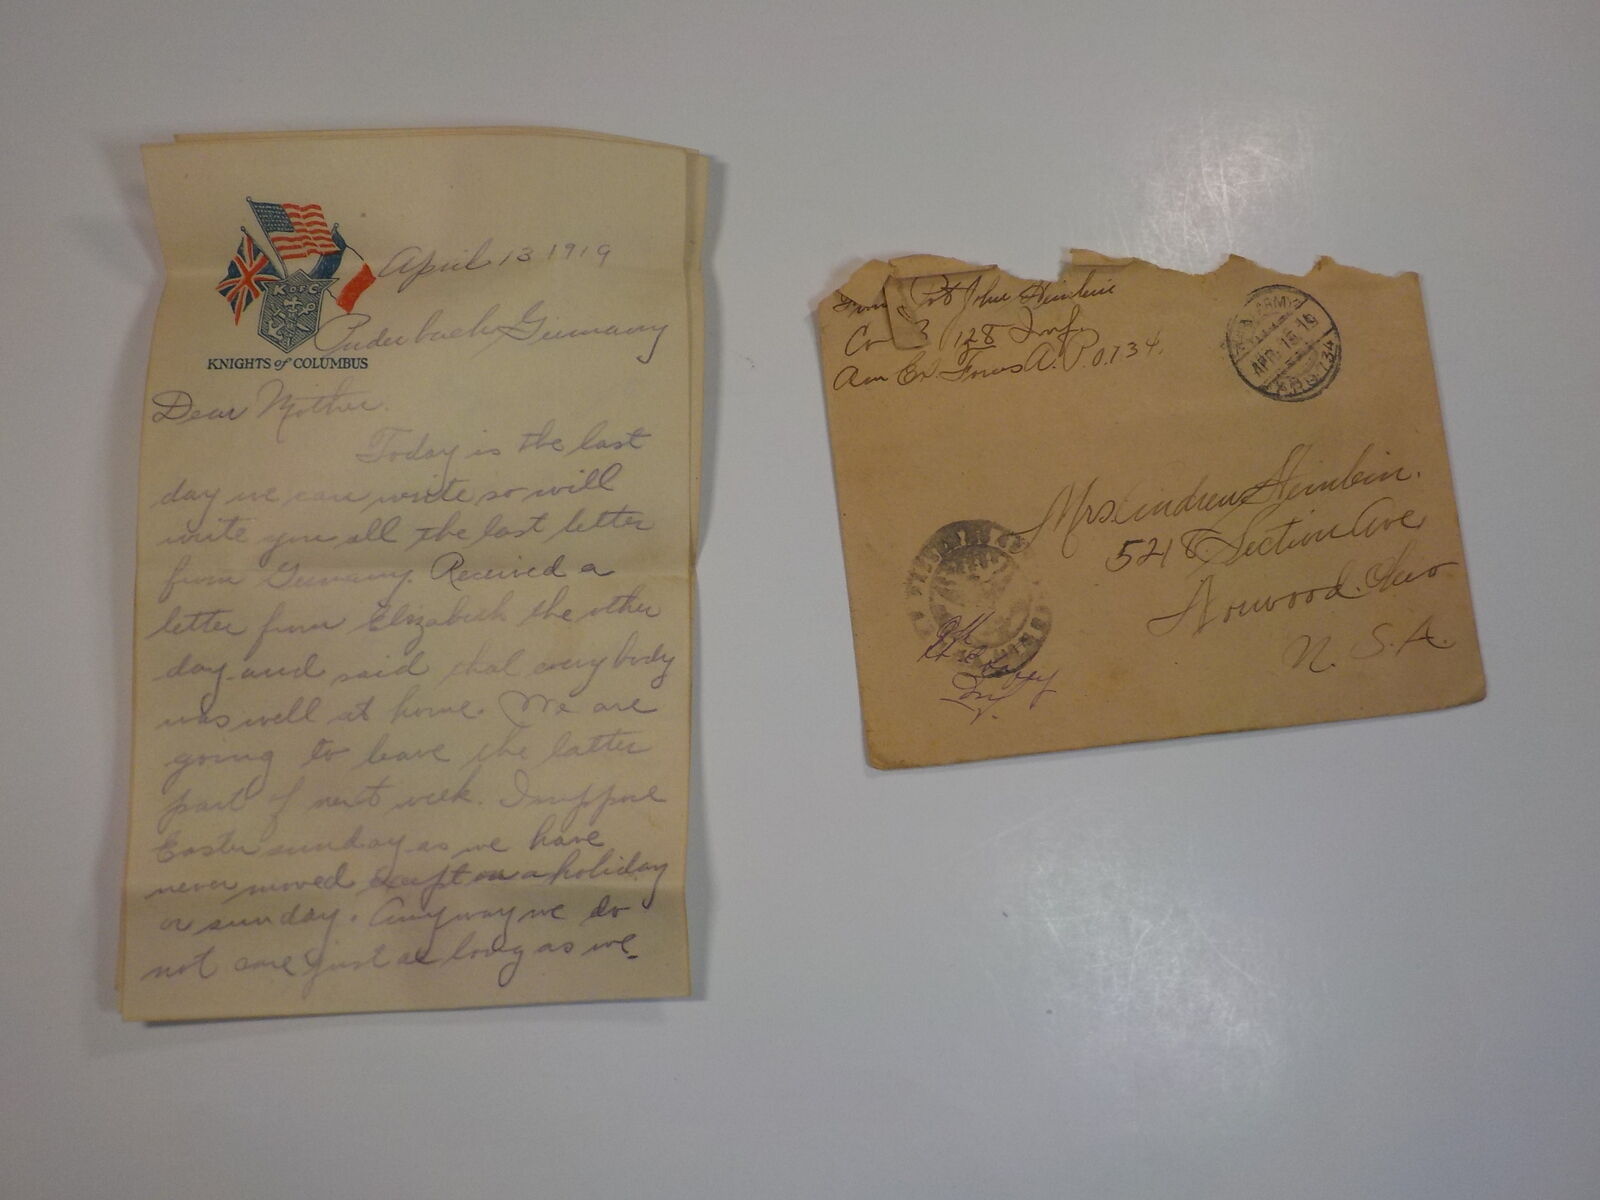 K of C
KNIGHTS of COLUMBUS
April 13 1919
Puderbach Germany
Dear Mother.
Today is the last
day we can write so will
write you all the last letter
from Germany. Received a
letter from Elizabeth the other
day and said that every body
was well at home. We are
going to leave the latter
part of next week. I suppose
Easter sunday as we have
never moved except on a holiday
or sunday. Anyway we do
not care just as long as we
From Pvt John Heimlein
Co B 128 Inf.
Am Ex. Forces A. P. O. 734.
ARMY
APR 15 19
734
Mrs Andrew Heimlein.
5218 Section Ave
Norwood. Ohio
U. S. A.
Inf